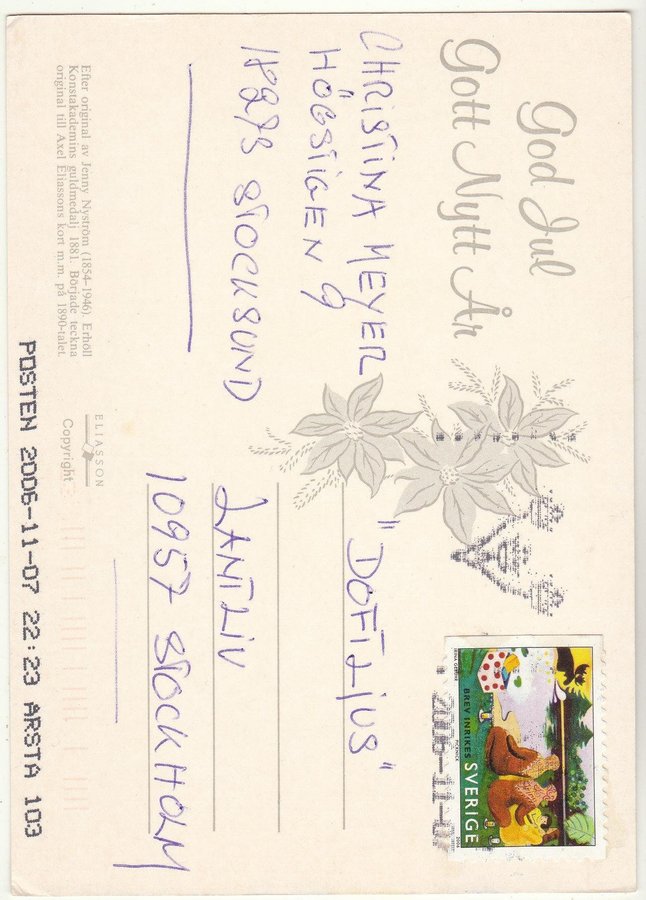 God Jul
Gott Nytt År
CHRISTINA MEYER
HÖGSTIGEN 9
18275 STOCKSUND
"DOFTLJUS"
LANTLIV
10957 STOCKHOLM
Efter original av Jenny Nyström (1854-1946). Erhöll
Konstakademins guldmedalj 1881. Började teckna
original till Axel Eliassons kort m.m. på 1890-talet.
ELIASSON
Copyright
POSTEN 2006-11-07 22:23 ÅRSTA 103
BREV INRIKES SVERIGE
PICKNICK
2006
2006-11-0